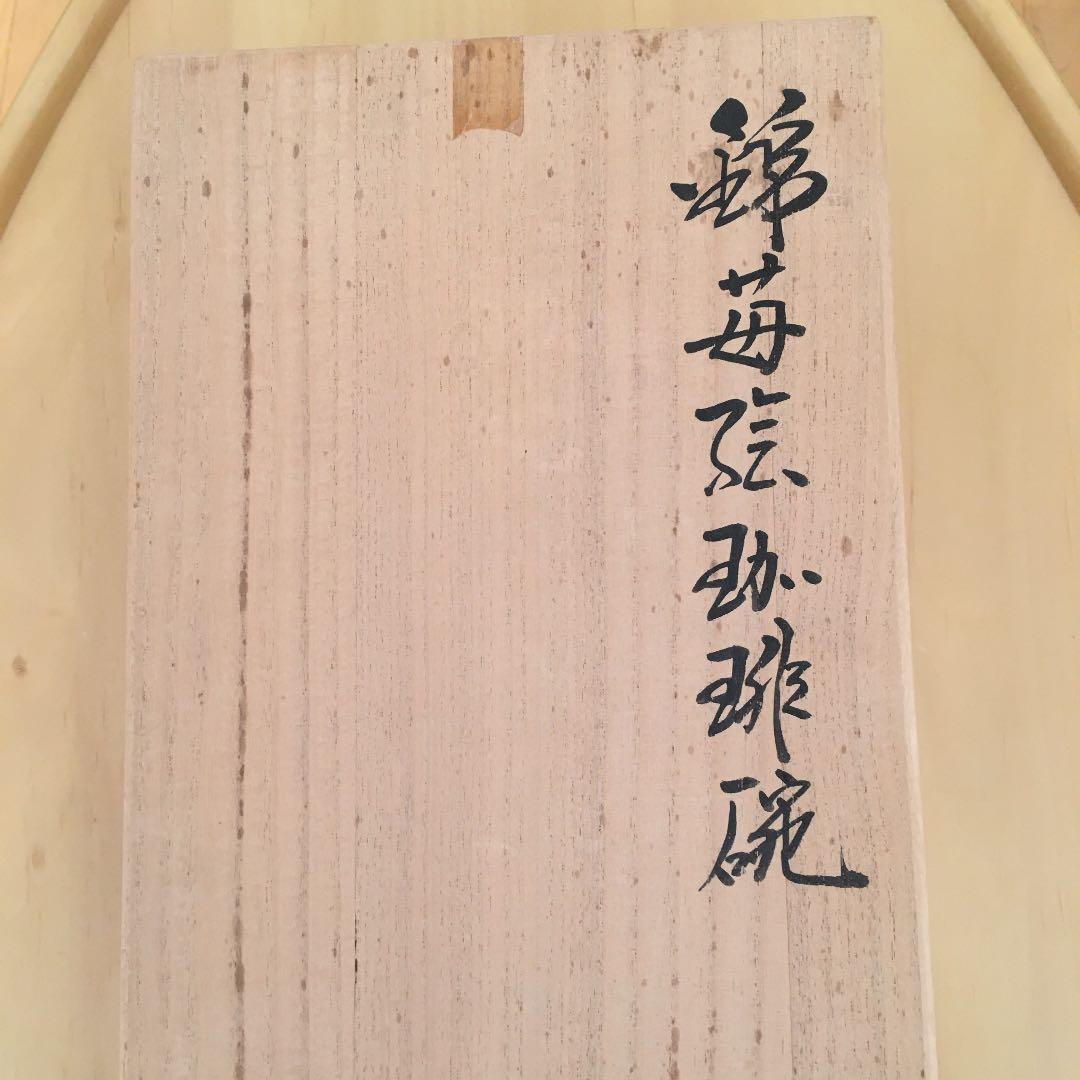 錦苺絵珈琲碗